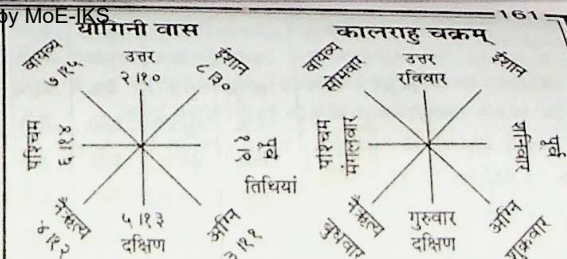 by MoE-IKS
161
योगिनी वास
वायव्य
७।१५
उत्तर
२।१०
ईशान
८।३०
पश्चिम
६।१४
पूर्व
१।९
तिथियां
नैऋत्य
४।१२
५।१३
दक्षिण
अग्नि
३।११
कालराहु चक्रम्
वायव्य
सोमवार
उत्तर
रविवार
ईशान
पश्चिम
मंगलवार
पूर्व
शनिवार
नैऋत्य
बुधवार
गुरुवार
दक्षिण
अग्नि
शुक्रवार